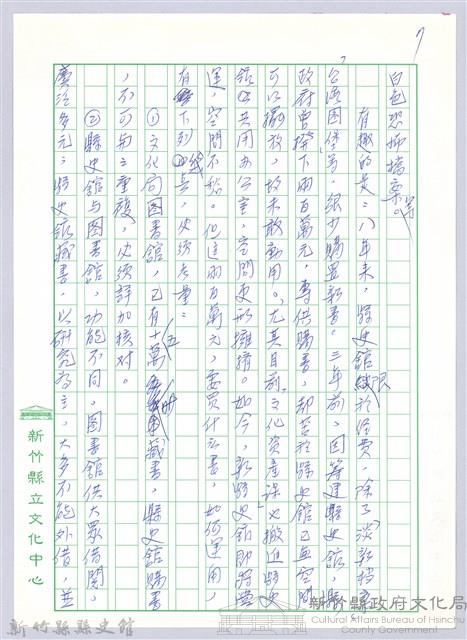 7
白色恐怖檔案等。
有趣的是：八年來，縣史館限於經費，除了「淡新檔案」、
公酒園堡等，很少購置新書。三年前，因籌建縣史館，縣
政府曾撥下兩百萬元，專供購書，却苦於縣史館已無空間
可以擺放，故未敢動用。尤其目前「文化資產課」也搬進縣史
館共用办公室，空間更形擁擠。如今，新縣史館即將營
運，空間不愁。但這兩百萬元，要買什么書，如何運用，
有下列四點，必須考量：
①文化局图書館，已有十五萬册藏書，縣史館購書
，不可与之重複，必須詳加核对。
②縣史館与图書館，功能不同，图書館供大眾借閱，
廣泛多元；縣史館藏書，以研究為主，大多不能外借，並
新竹縣立文化中心
新竹縣縣史館
新竹縣政府文化局
Cultural Affairs Bureau of Hsinchu
County Government